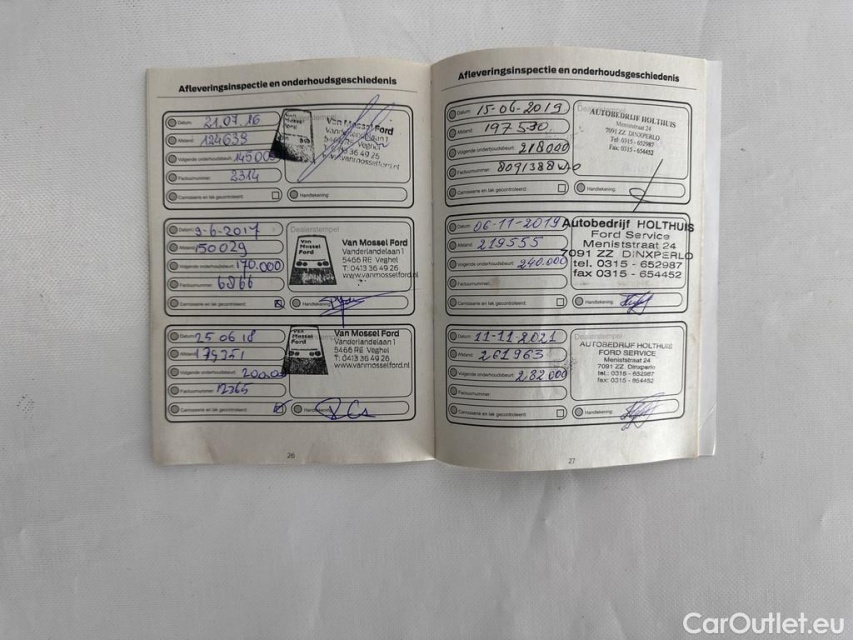 Afleveringsinspectie en onderhoudsgeschiedenis
Datum: 21.07.16
Afstand: 124639
Volgende onderhoudsbeurt: 145000
Factuurnummer: 2314
Carrosserie en lak gecontroleerd:
Handtekening:
Van Mossel Ford
Vanderlandelaan 1
5466 RE Veghel
T: 0413 36 49 26
www.vanmosselford.nl
Datum: 9-6-2017
Afstand: 150029
Volgende onderhoudsbeurt: 170.000
Factuurnummer: 6866
Carrosserie en lak gecontroleerd:
Dealerstempel
Van Mossel Ford
Van Mossel Ford
Vanderlandelaan 1
5466 RE Veghel
T: 0413 36 49 26
www.vanmosselford.nl
Handtekening:
Datum: 25 06 18
Afstand: 179351
Volgende onderhoudsbeurt: 200.000
Factuurnummer: 12365
Carrosserie en lak gecontroleerd:
Van Mossel Ford
Van Mossel Ford
Vanderlandelaan 1
5466 RE Veghel
T: 0413 36 49 26
www.vanmosselford.nl
Handtekening:
26
Afleveringsinspectie en onderhoudsgeschiedenis
Datum: 15-06-2019
Afstand: 197530
Volgende onderhoudsbeurt: 218000
Factuurnummer: 8091388
Carrosserie en lak gecontroleerd:
Dealerstempel
AUTOBEDRIJF HOLTHUIS
Meniststraat 24
7091 ZZ DINXPERLO
Tel: 0315 - 652987
Fax: 0315 - 654452
Handtekening:
Datum: 06-11-2019
Afstand: 219555
Volgende onderhoudsbeurt: 240.000
Factuurnummer:
Carrosserie en lak gecontroleerd:
Autobedrijf HOLTHUIS
Ford Service
Meniststraat 24
7091 ZZ DINXPERLO
tel. 0315 - 652987
fax 0315 - 654452
Handtekening:
Datum: 11-11-2021
Afstand: 261963
Volgende onderhoudsbeurt: 282.000
Factuurnummer:
Carrosserie en lak gecontroleerd:
Dealerstempel
AUTOBEDRIJF HOLTHUIS
FORD SERVICE
Meniststraat 24
7091 ZZ Dinxperlo
tel.: 0315 - 652987
fax: 0315 - 654452
Handtekening:
27
CarOutlet.eu